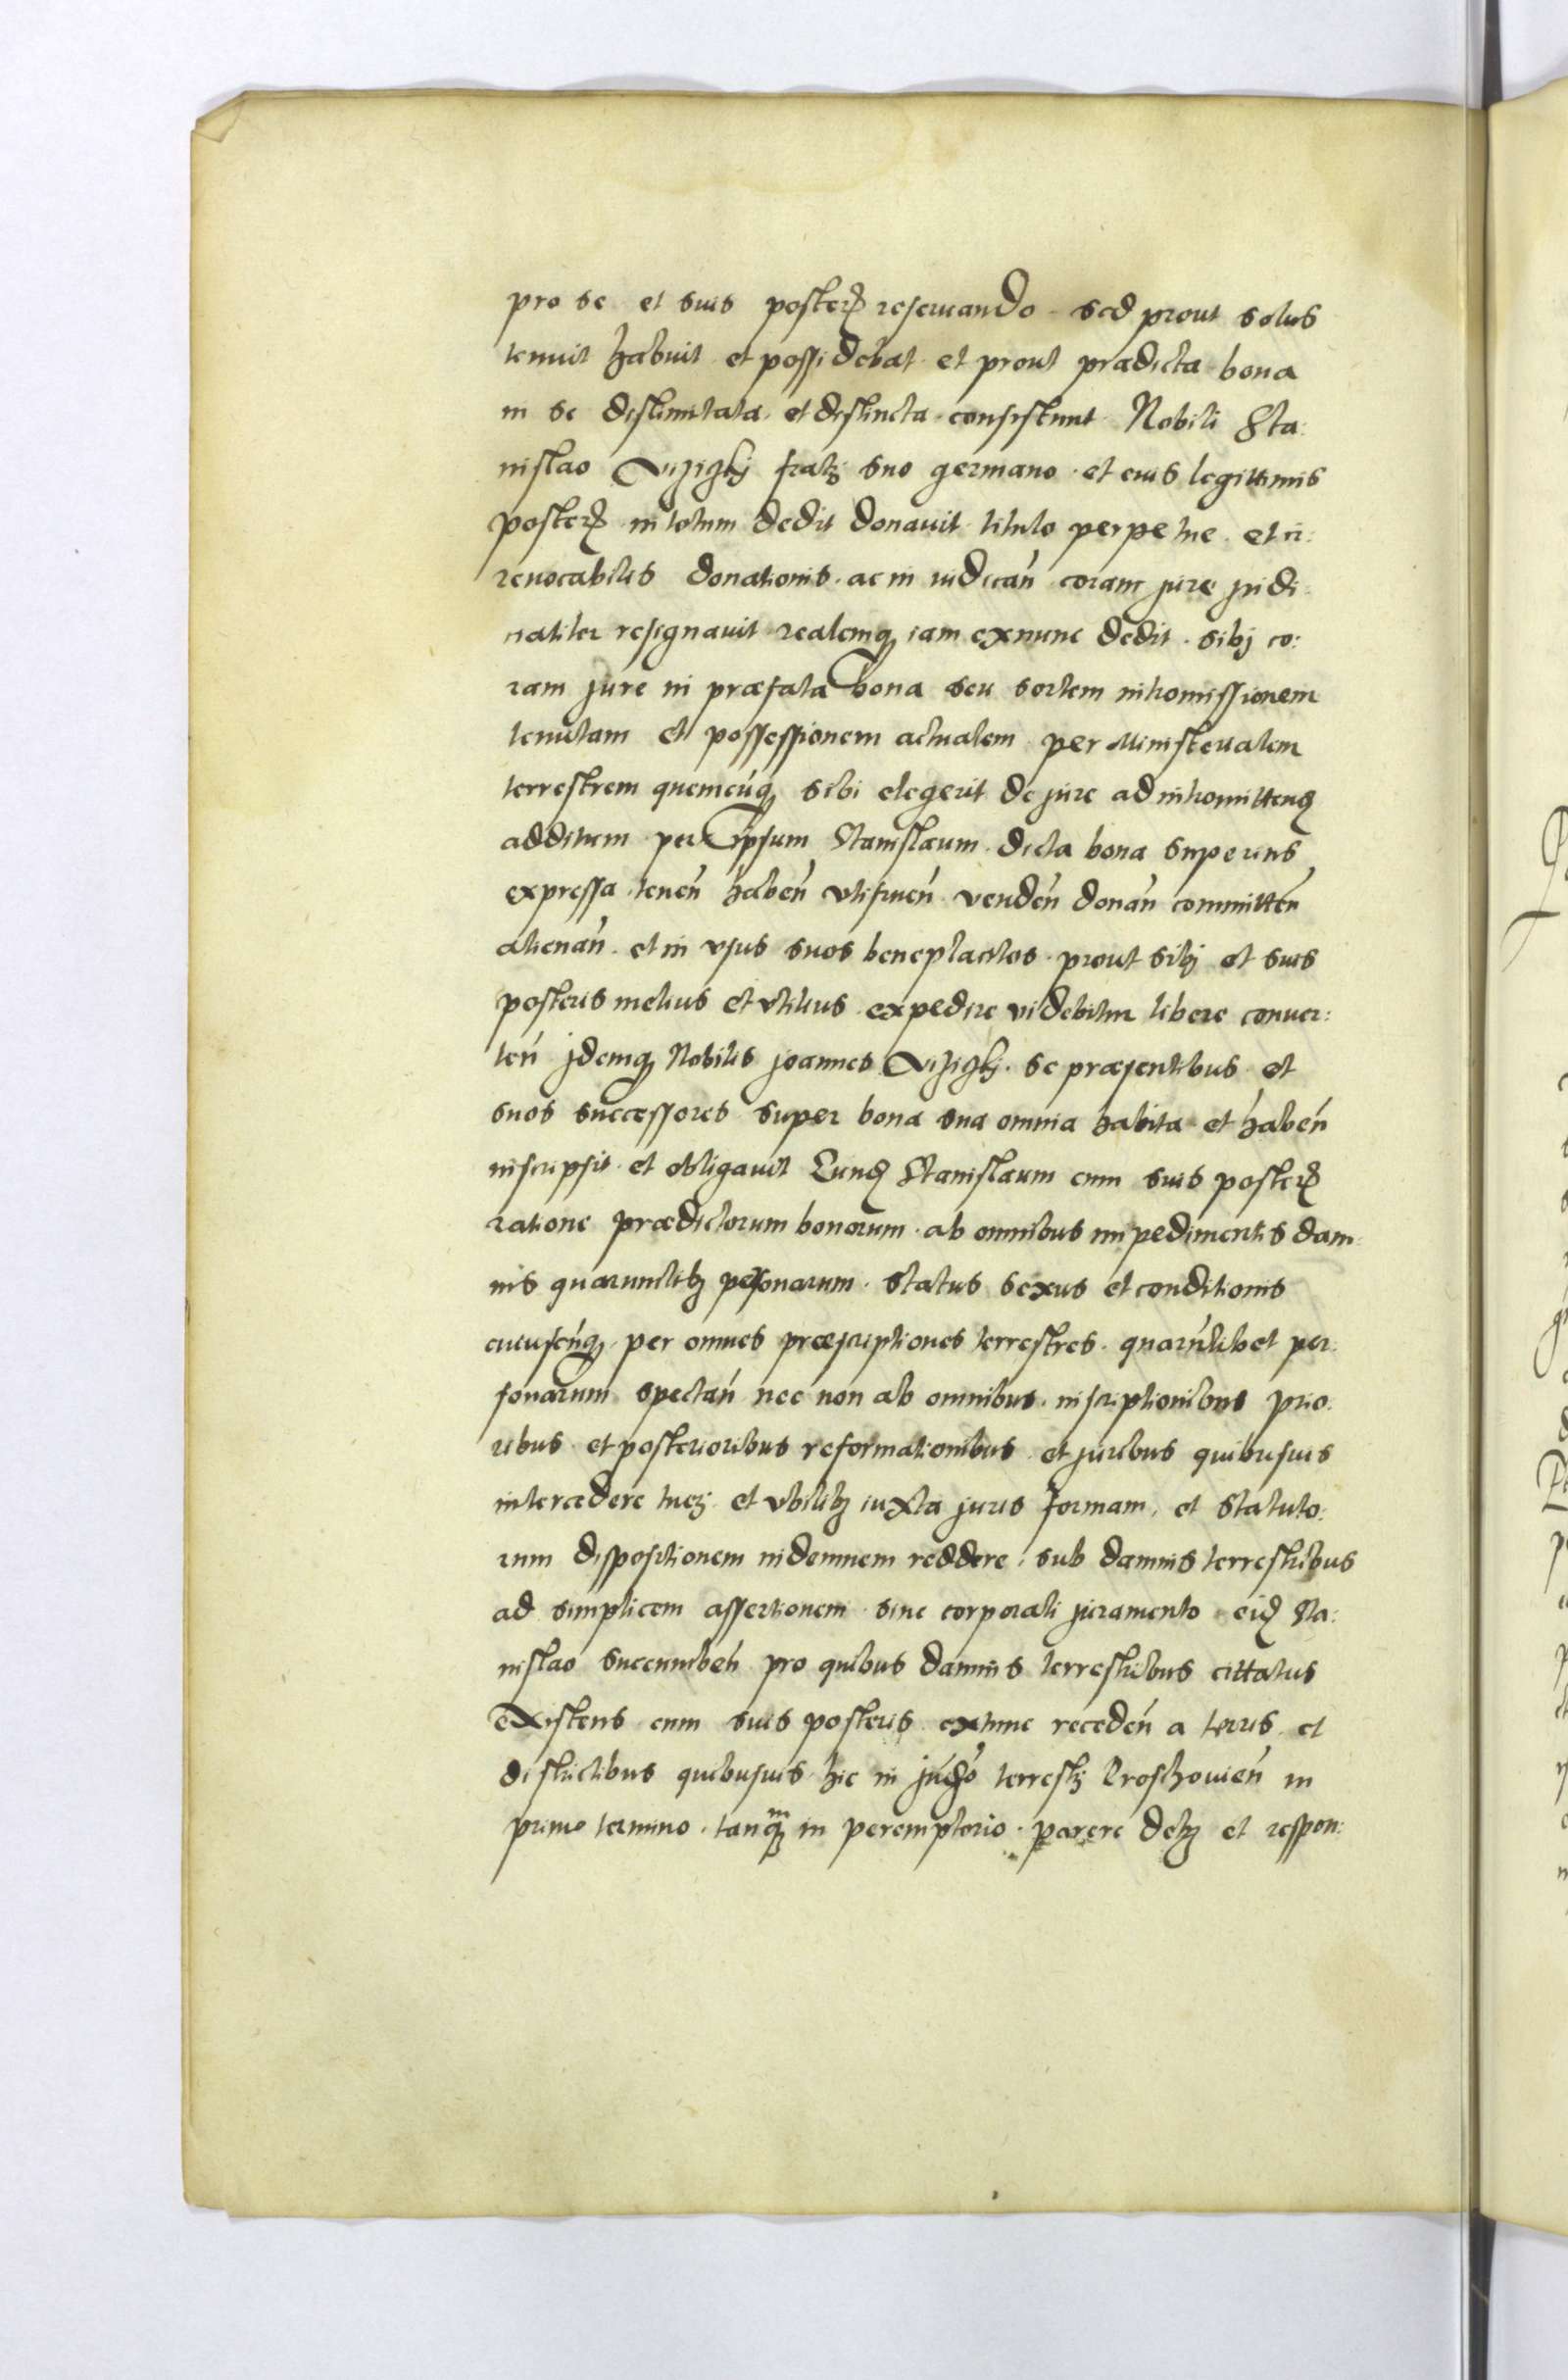 pro se et suis posteris reseruando sed prout solus
tenuit habuit et possidebat et prout prædicta bona
in se dislimitata et distincta consistunt Nobili Sta:
nislao frati suo germano et eius legittimis
posteris in totum dedit donauit titulo perpetue et ir:
reuocabilis donationis ac in iudicań coram jure judi:
cialiter resignauit realemq iam exnunc dedit sibj co:
ram jure in præfata bona seu sortem intromissionem
tenutam et possessionem actualem per Ministerialem
terrestrem quemcúq sibi elegerit de jure ad intromittend
additum per ipsum Stanislaum dicta bona superius
expressa teneń habeń vtifrueń vendeń donań committeń
alienań et in vsus suos beneplacitos prout sibj et suis
posteris melius et vtilius expedire videbitur libere conuer:
teń jdemq Nobilis joannes se præsentibus et
suos successores super bona sua omnia habita et habeń
inscripsit et obligauit Eund Stanislaum cum suis posteris
ratione prædictorum bonorum ab omnibus impedimentis dam:
nis quarumlibz personarum status sexus et conditionis
cuiuscúq per omnes præscriptiones terrestres quarúlibet per:
sonarum spectań nec non ab omnibus inscriptionibus prio:
ribus et posterioribus reformationibus et juribus quibusuis
intercedere tuez et vbilibz iuxta juris formam et Statuto:
rum dispositionem indemnem reddere sub damnis terrestribus
ad simplicem assertionem sine corporali juramento eid Sta:
nislao succumbeń pro quibus damnis terrestribus cittatus
existens cum suis posteris extunc recedeń a terris et
districtibus quibusuis hic in judo terrestj Croschouień in
primo termino tanqm in peremptorio parere debz et respon: